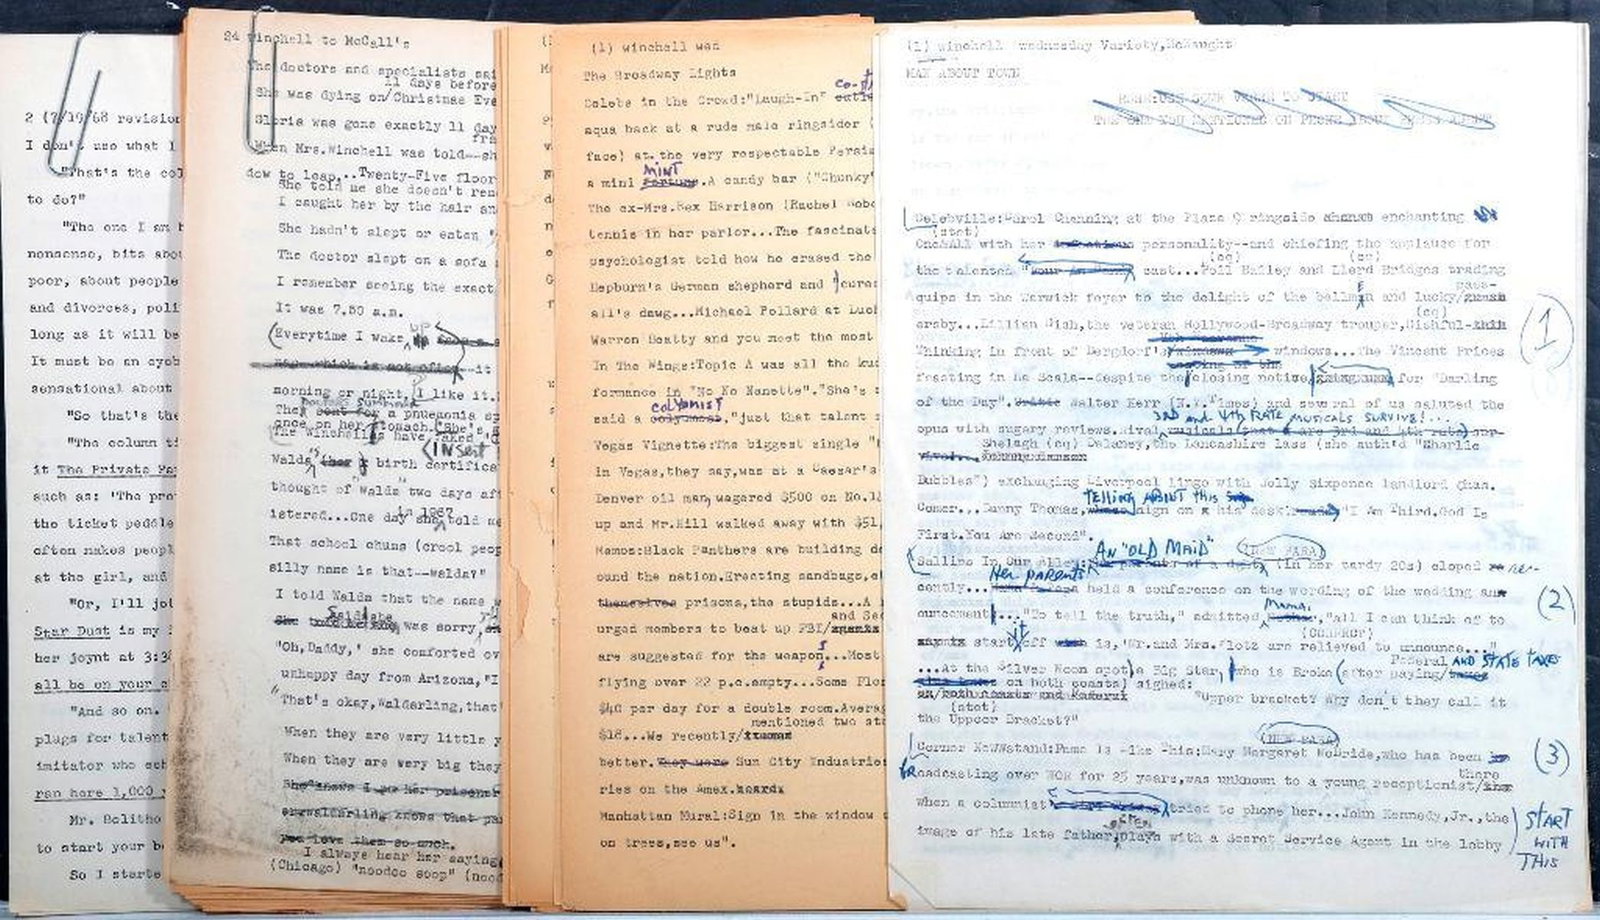 2 (7/19/68 revision
I don't use what I
"That's the col
to do?"
"The one I am
nonsense, bits abou
poor, about people
and divorces, poli
long as it will be
It must be an eyeb
sensational about
"So that's the
"The column ti
it The Private Pa
such as: 'The pro
the ticket peddle
often makes peopl
at the girl, and
"Or, I'll jot
Star Dust is my
her joynt at 3:3
all be on your c
"And so on.
plugs for talent
imitator who
ran here 1,000
Mr. Bolitho
to start your be
So I starte
24 winchell to McCall's
The doctors and specialists sai
11 days before
She was dying on/Christmas Eve
Gloria was gone exactly 11 day
When Mrs.Winchell was told--sh
dow to leap...Twenty-Five floor
She told me she doesn't rem
I caught her by the hair an
She hadn't slept or eaten
The doctor slept on a sofa
I remember seeing the exact
It was 7.50 a.m.
Everytime I wake up
which is not often it
morning or night, I like it.
The sent for a pneumonia sp
ance on her stomach. She's
The Winchells have
(Insert
Walda's birth certifica
thought of "Walda" two days af
in 1967
istered...One day she told me
That school chums (crool peop
silly name is that--walda?"
I told Walda that the name w
Said she
She told me was sorry,
"Oh,Daddy,' she comforted ov
unhappy day from Arizona,"I
"That's okay,Waldarling,that'
When they are very little y
When they are very big they
She knows I am her prisoner
waldarling knows that pa
you love them so much.
I always hear her saying
(Chicago) "noodoo soop" (nood
(1) winchell wed
The Broadway Lights
Celebs in the Crowd:"Laugh-In"
aqua back at a rude male ringsider (
face) at the very respectable Persia
MINT
a mini fortune.A candy bar ("Chunky"
The ex-Mrs.Rex Harrison (Rachel Robe
tennis in her parlor...The fascinate
psychologist told how he erased the
Hepburn's German shepherd and cured
all's dawg...Michael Pollard at Luch
Warren Beatty and you meet the most
In The Wings:Topic A was all the kud
formance in "No No Nanette"."She's
COLYUMIST
said a columnist,"just that talent
Vegas Vignette:The biggest single
in Vegas,they say,was at a Caesar's
Denver oil man, wagered $500 on No.1
up and Mr.Hill walked away with $51,
Ramos:Black Panthers are building de
ound the nation.Erecting sandbags,e
themselves prisons,the stupids...A
and Sec
urged members to beat up FBI/
are suggested for the weapons...Most
flying over 22 p.c.empty...Some Flo
$40 per day for a double room.Averag
mentioned two st
$18...We recently/
better.They were Sun City Industries
ries on the Amex.
Manhattan Mural:Sign in the window
on trees,see us".
(1) winchell wednesday Variety,McNaught
MAN ABOUT TOWN
ROSE:USE YOUR VERSN TO START
THE ONE YOU MENTIONED ON PHONE
Celebville:Carol Channing at the Plaza 9 ringside enchanting
(stet)
OneAll with her infectious personality--and chiefing the applause for
(cq) (cq)
the talented "Your cast...Poil Bailey and Lloyd Bridges trading
pass-
quips in the Warwick foyer to the delight of the bellmen and lucky/
(cq)
ersby...Lillian Gish,the veteran Hollywood-Broadway trouper,Gishful-
Thinking in front of Bergdorf's windows...The Vincent Prices
feasting in La Scala--despite the closing notice, for "Darling
of the Day".Critic Walter Kerr (N.Y.Times) and several of us saluted the
3RD and 4th RATE musicals SURVIVE!...
opus with sugary reviews.Rival musicals (that are 3rd and 4th rate) sur-
Shelagh (cq) Delaney,the Lancashire lass (she auth'd "Charlie
Bubbles") exchanging Liverpool lingo with Jolly Sixpence landlord Chas.
TELLING ABOUT this
Comer...Danny Thomas, sign on his desk: "I Am Third.God Is
First.You Are Second".
AN "OLD MAID" (NEW PARA)
Sallies In Our Alley: (in her tardy 20s) eloped re-
Her parents
cently... held a conference on the wording of the wedding an
Mama
ouncement..."To tell the truth," admitted ,"all I can think of to
it (CORRECT)
start off is,'Mr.and Mrs.Flotz are relieved to announce..."
Federal AND STATE TAXES
...At the Silver Moon spot a Big Star, who is Broke (after paying/taxes
on both coasts) sighed:
"Upper bracket? Why don't they call it
(stet)
the Uppoor Bracket?"
(NEW PARA)
Corner Newwstand:Fame Is Like This:Mary Margaret McBride,who has been
BRoadcasting over WOR for 25 years,was unknown to a young receptionist/
there
when a columnist tried to phone her...John Kennedy,Jr.,the
image of his late father,plays with a Secret Service Agent in the lobby
(1)
(2)
(3)
START
WITH
THIS